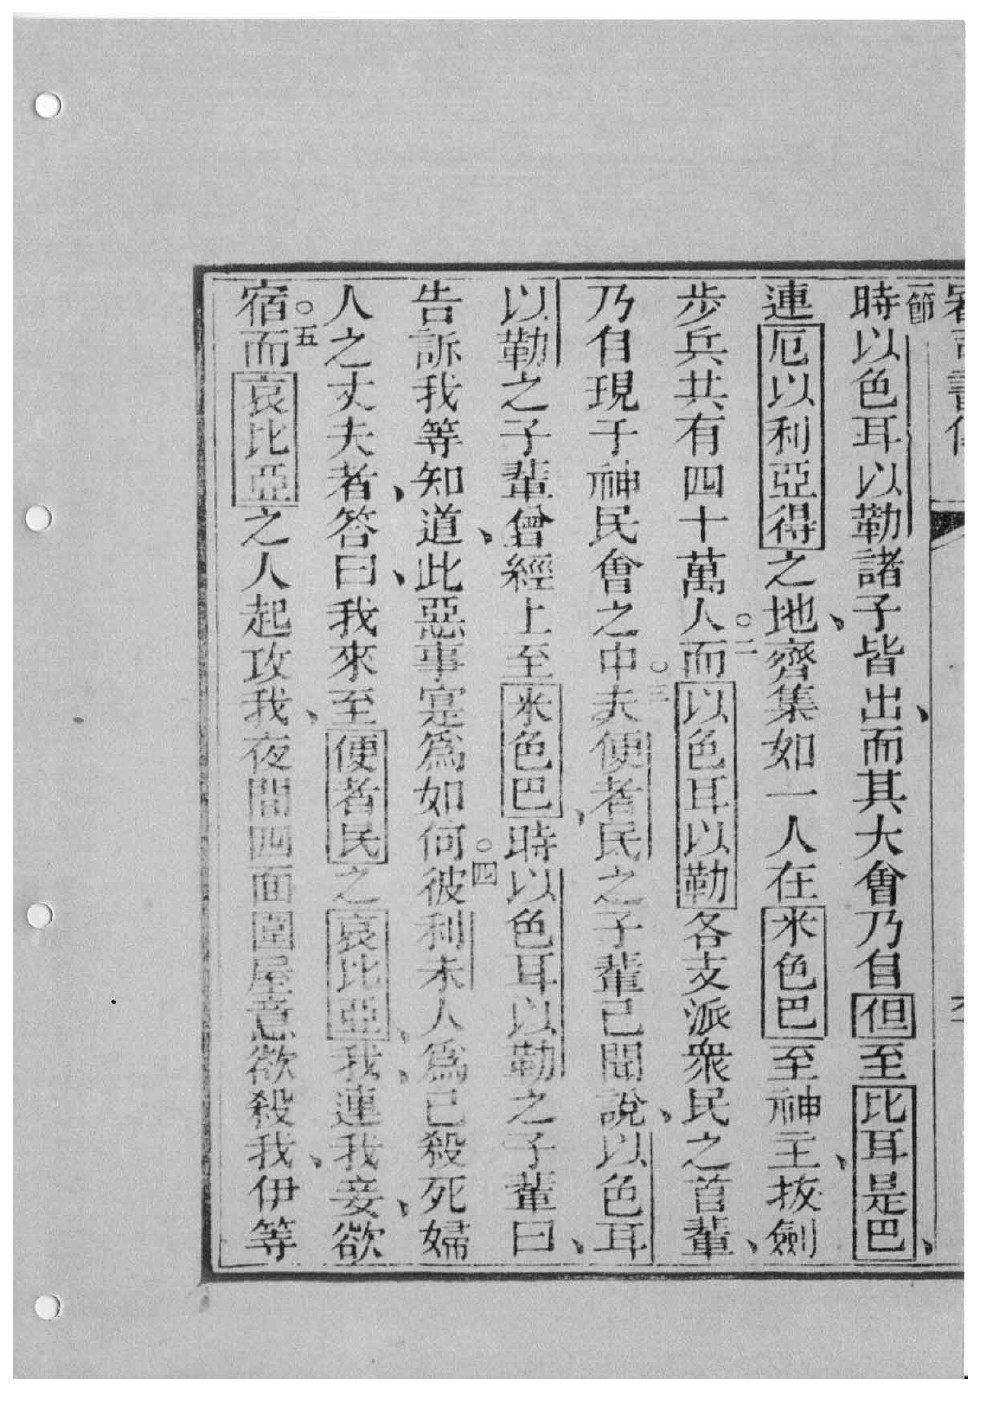 書
一節
時以色耳以勒諸子皆出、而其大會乃自但至比耳是巴、
連厄以利亞得之地、齊集如一人在米色巴至神主、拔劍
步兵共有四十萬人○二而以色耳以勒各支派衆民之首輩、
乃自現于神民會之中○三夫便者民之子輩已聞說、以色耳
以勒之子輩曾經上至米色巴、時以色耳以勒之子輩曰、
告訴我等知道、此惡事寔爲如何○四彼利未人爲已殺死婦
人之丈夫者、答曰、我來至便者民之哀比亞、我、連我妾、欲
宿○五而哀比亞之人起攻我、夜間四面圍屋意欲殺我、伊等